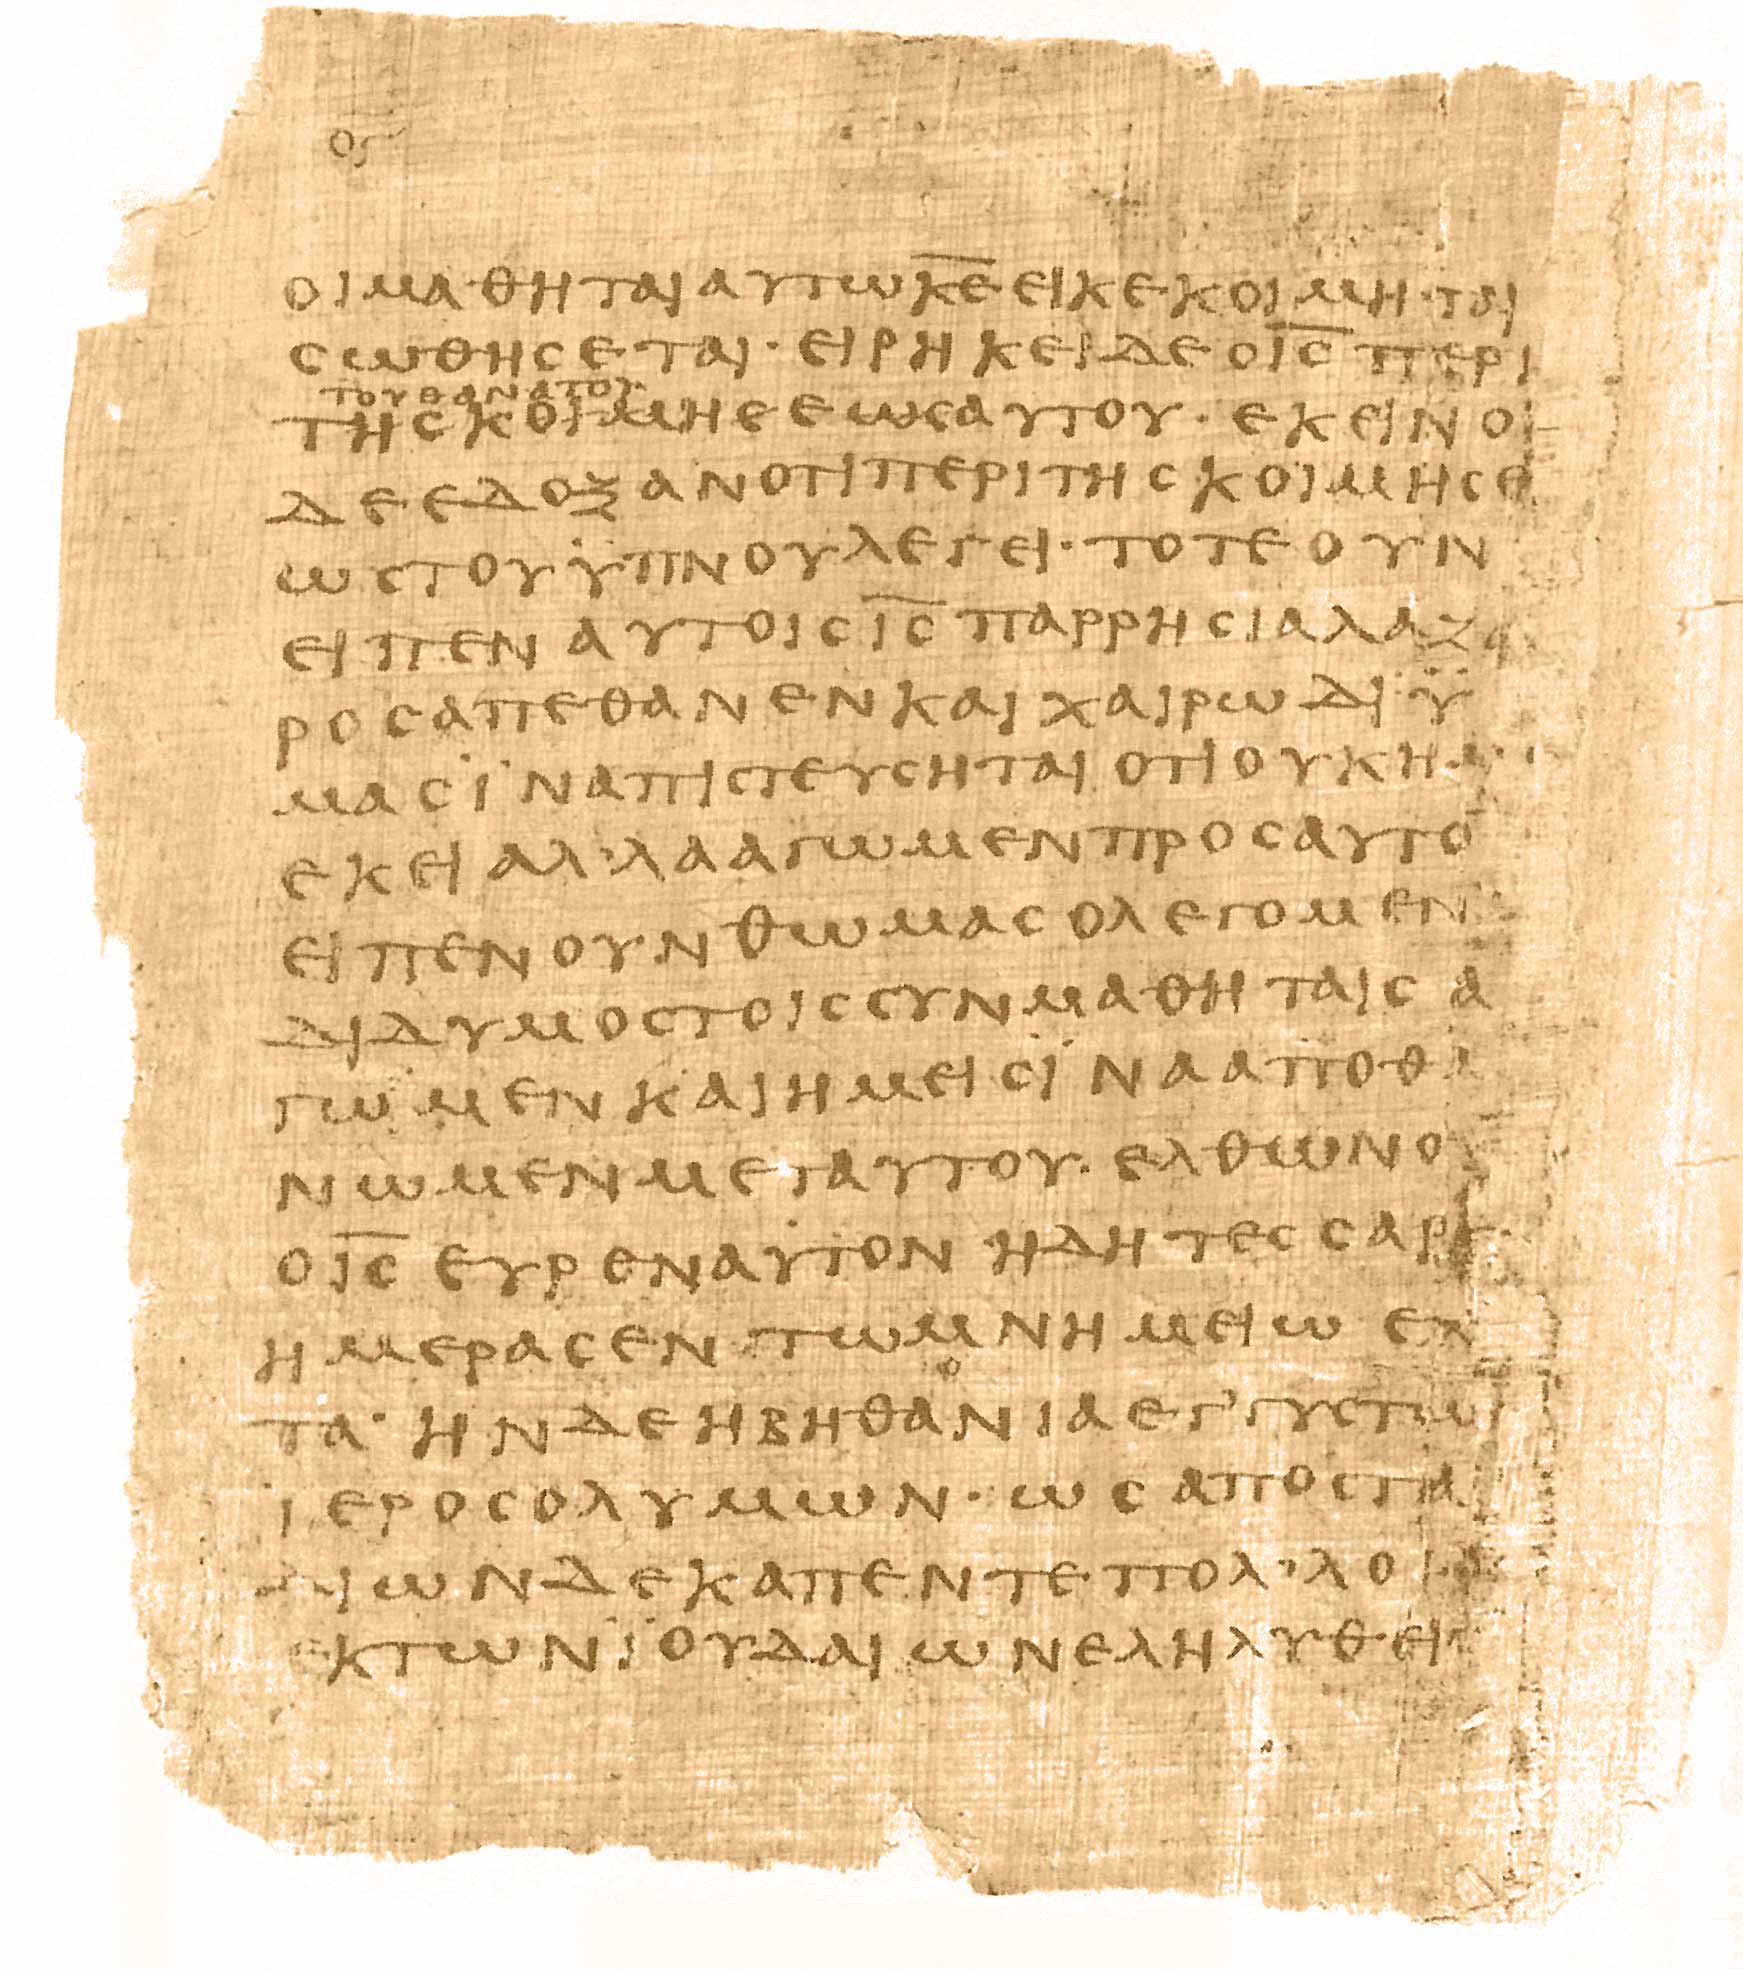 ος
οιμαθηταιαυτωκ̅ε̅εικεκοιμηται
σωθησεται· ειρηκειδεοι̅ς̅περι
τουθανατου
τηςκοιμησεωςαυτου· εκεινοι
δεεδοξανοτιπεριτηςκοιμησε
ωςτουϋπνουλεγει· τοτεουν
ειπεναυτοιςι̅ς̅παρρησιαλαζα
ροςαπεθανενκαιχαιρωδιϋ
μαςϊναπιστευσηταιοτιουκημ
εκειαλ᾽λααγωμενπροςαυτο
ειπενουνθωμαςολεγομεν
διδυμοςτοιςσυνμαθηταιςα
γωμενκαιημειςϊνααποθα
νωμενμεταυτου· ελθωνου
οι̅ς̅ευρεναυτονηδητεσσαρε
ημεραςεντωμνημειωεχ
ο
τα· ηνδεηβηθανιαεγ᾽γυςτω
ιεροσολυμων· ωςαποστα
διωνδεκαπεντεπολ᾽λοι
εκτωνϊουδαιωνεληλυθει